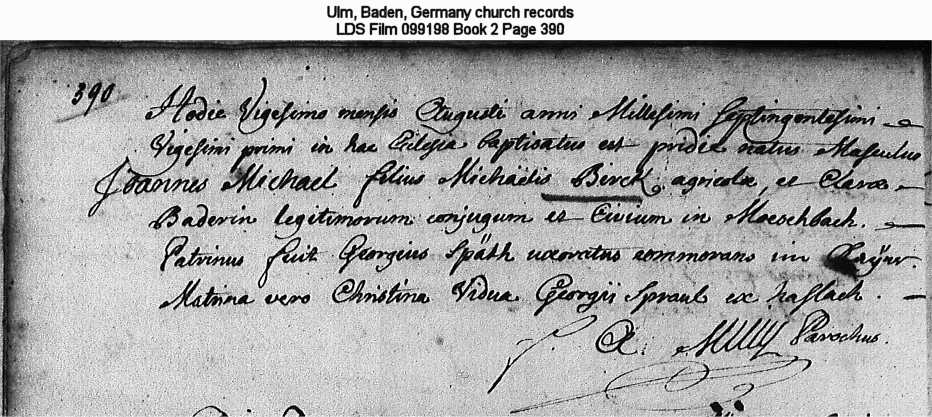 Ulm, Baden, Germany church records
LDS Film 099198 Book 2 Page 390
390
Hodie Vigesimo mensis Augusti anni Millesimi Septingentesimi
Vigesimi primi in hac Eclesia baptisatus est pridie natus Masculus
Joannes Michael filius Michaëlis Birck, agricolæ, et Claræ
Baderin legitimorum conjugum et Civium in Moeschbach.
Patrinus fuit Georgius Späth uxoratus commorans im
Matrina vero Christina Vidua Georgii Spraul ex haslach.
Parochus.